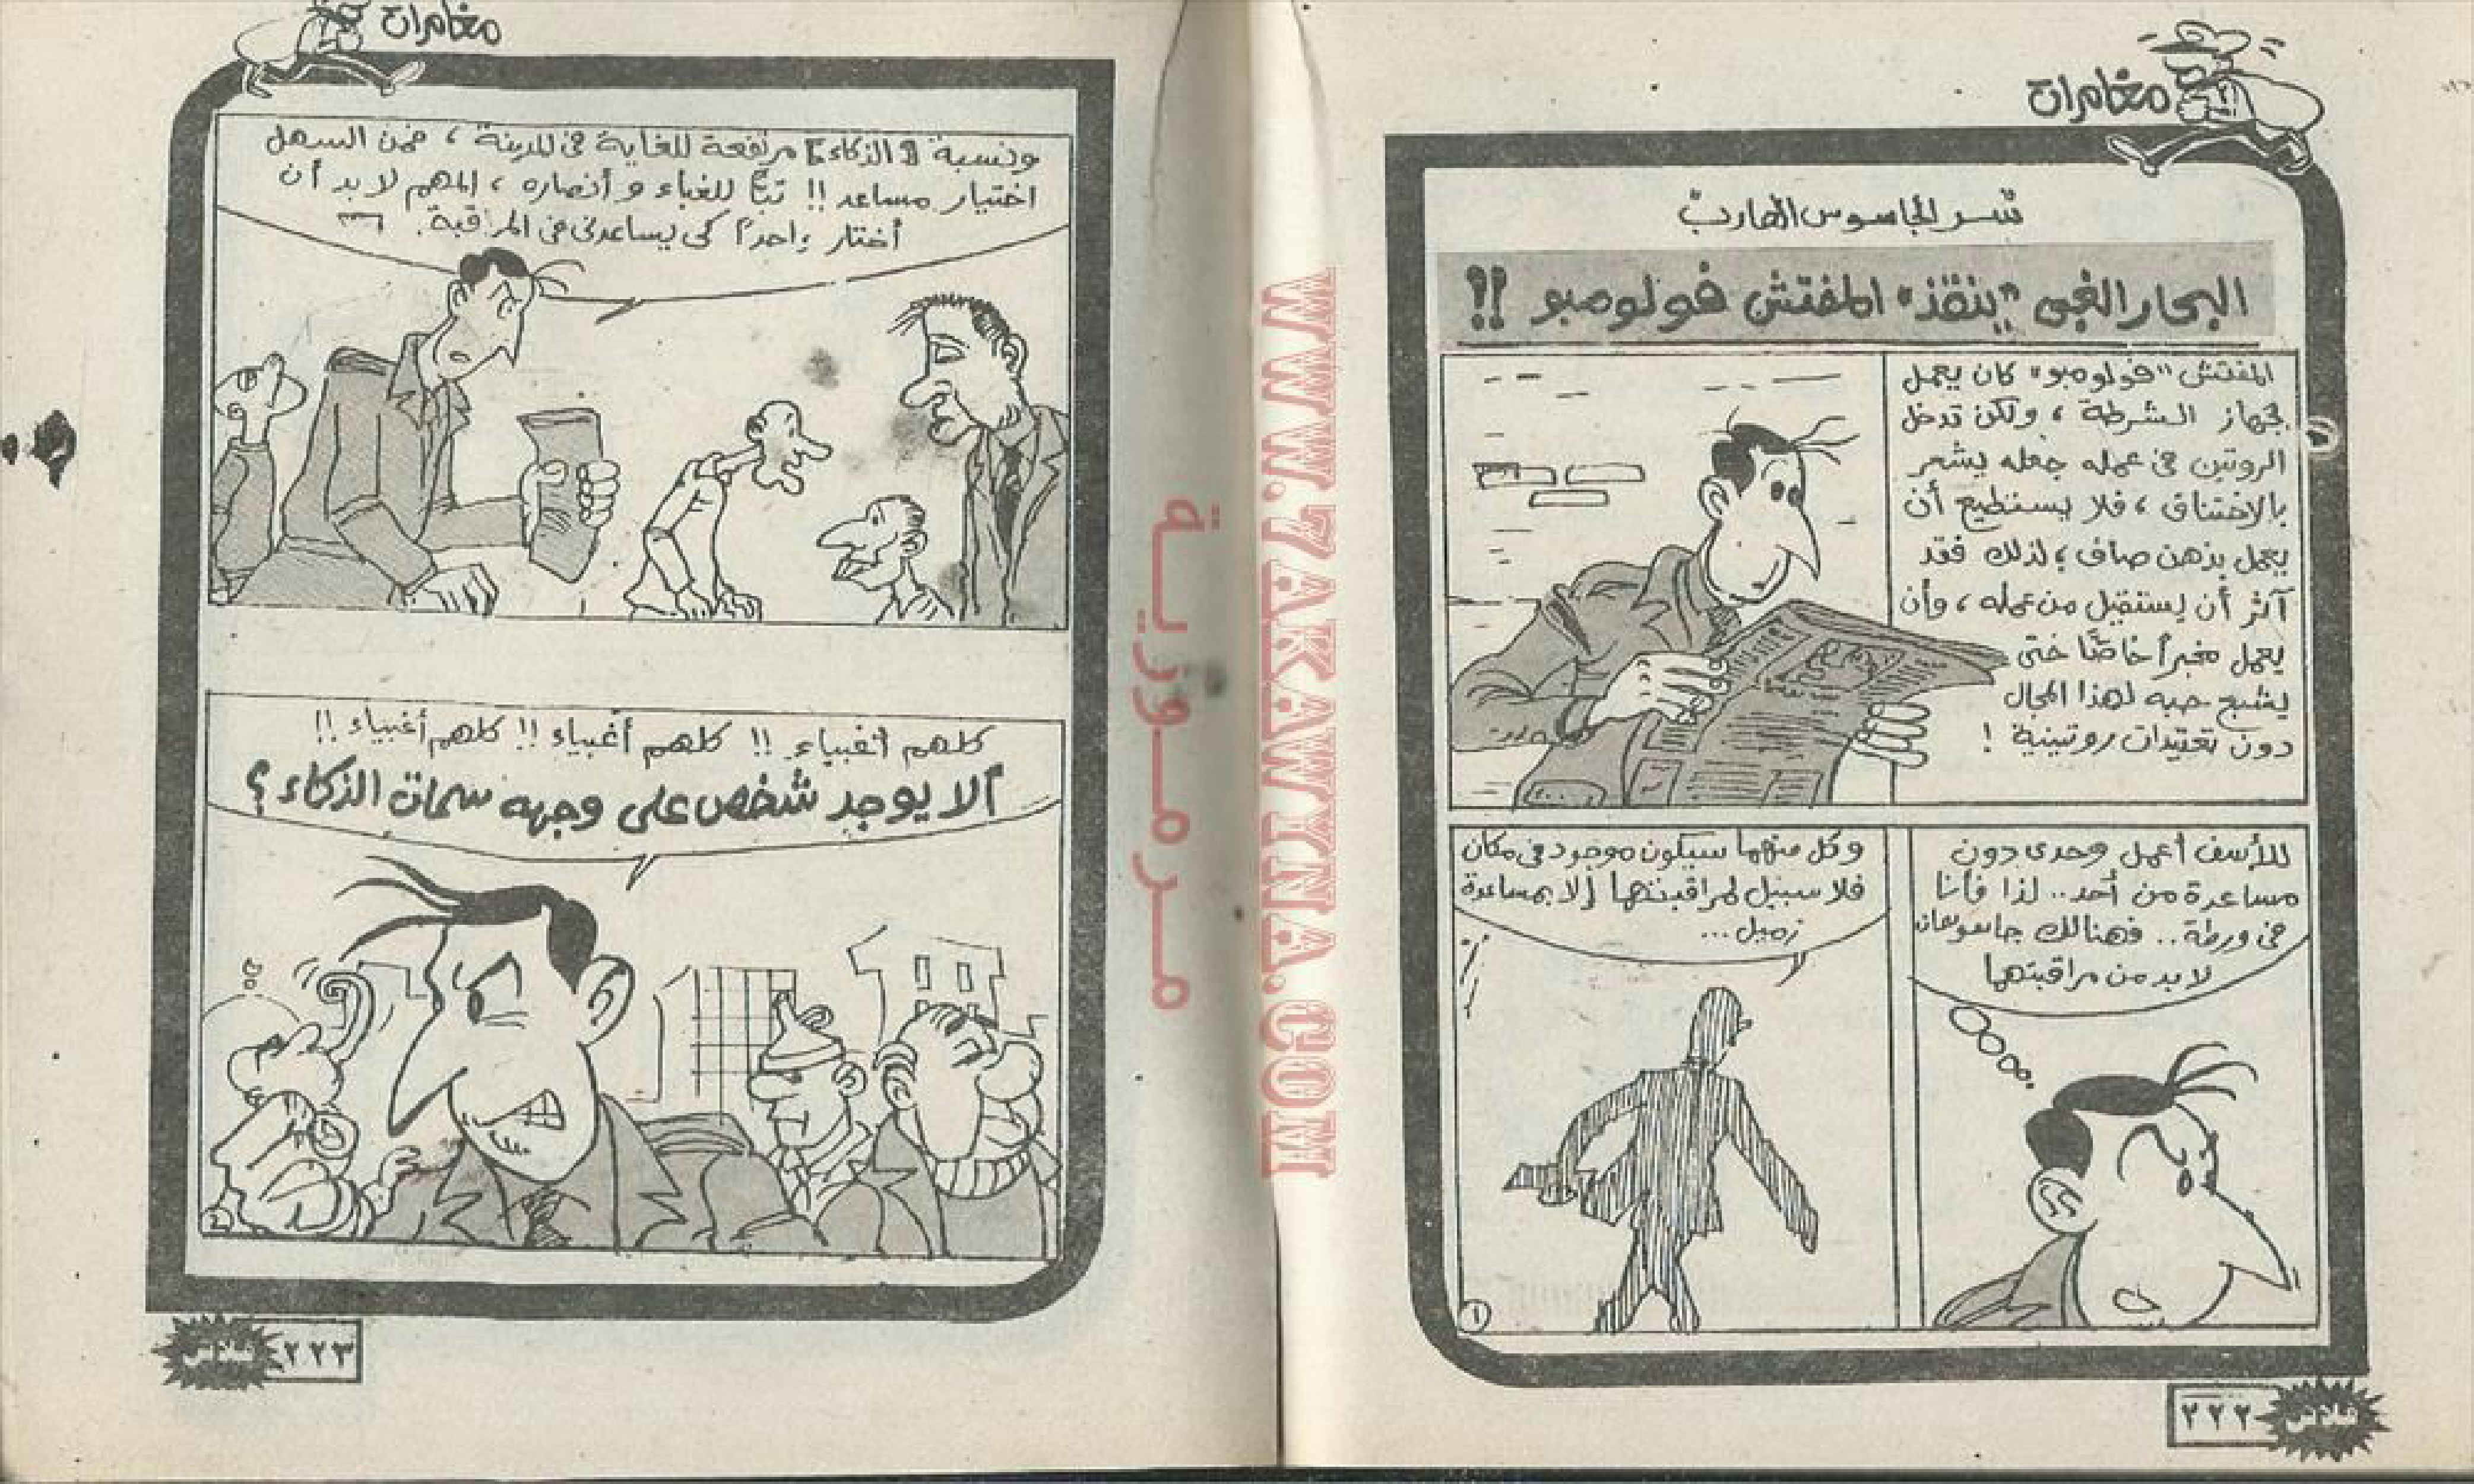 مغامرات
سر الجاسوس الهارب
البحار الغبى "ينقذ" المفتش فولومبو !!
المفتش "فولومبو" كان يعمل
بجهاز الشرطة ، ولكن تدخل
الروتين فى عمله جعله يشعر
بالاختناق ، فلا يستطيع أن
يعمل بذهن صاف ، لذلك فقد
آثر أن يستقيل من عمله ، وأن
يعمل مخبراً خاصًّا حتى
يشبع حبه لهذا المجال
دون تعقيدات روتينية !
للأسف أعمل وحدى دون
مساعدة من أحد .. لذا فأنا
فى ورطة .. فهنالك جاسوسان
لابد من مراقبتهما
وكل منهما سيكون موجود فى مكان
فلا سبيل لمراقبتهما إلا بمساعدة
زميل ...
١
فلاش
٢٢٢
مغامرات
ونسبة [ الذكاء ] مرتفعة للغاية فى المدينة ، فمن السهل
اختيار مساعد !! تبًّا للغباء و أنصاره ، المهم لابد أن
أختار واحداً كى يساعدنى فى المراقبة .
كلهم أغبياء !! كلهم أغبياء !! كلهم أغبياء !!
ألا يوجد شخص على وجهه سمات الذكاء ؟
٢٢٣
فلاش
WWW.7AKAWINA.COM
مرموزية